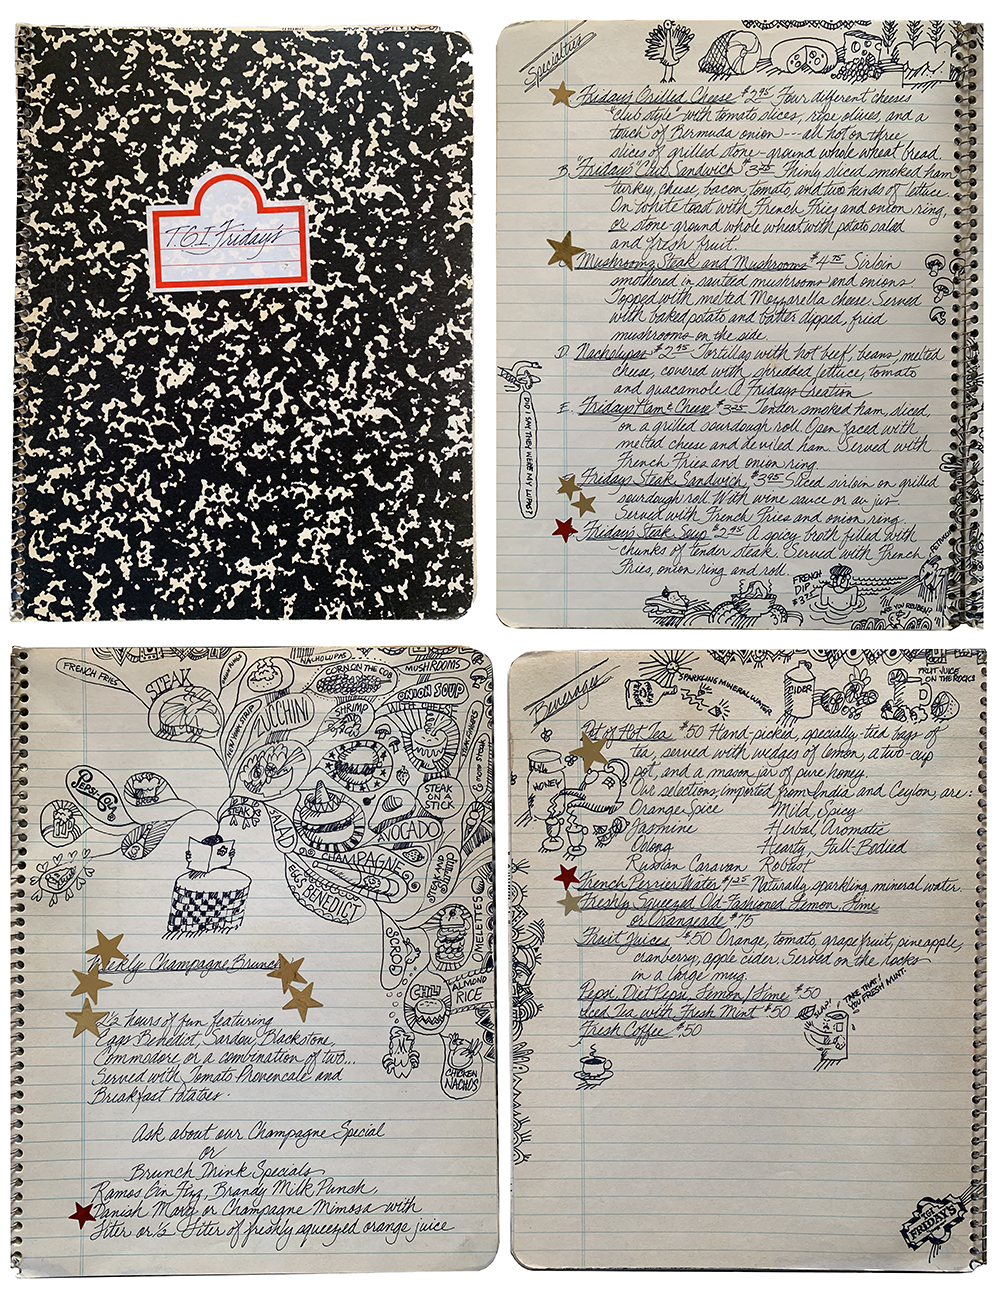 TGI Friday's
Specialties
Fridays Grilled Cheese $2.95 Four different cheeses
club style with tomato slices, ripe olives, and a
touch of Bermuda onion --- all hot on three
slices of grilled stone-ground whole wheat bread.
B. "Fridays" Club Sandwich $3.25 Thinly sliced smoked ham
turkey, cheese, bacon, tomato, and two kinds of lettuce.
On white toast with French Fries and onion ring,
or stone ground whole wheat with potato salad
and fresh fruit.
Mushrooms, Steak and Mushrooms $4.75 Sirloin
smothered in sautéed mushrooms and onions
Topped with melted Mozzarella cheese. Served
with baked potato and batter dipped, fried
mushrooms on the side.
D. Nacholupas $2.95 Tortillas with hot beef, beans, melted
cheese, covered with shredded lettuce, tomato
and guacamole. A Fridays Creation
E. Fridays Ham & Cheese $3.25 Tender smoked ham, sliced,
on a grilled sourdough roll. Open faced with
melted cheese and deviled ham. Served with
French Fries and onion ring.
Fridays Steak Sandwich $3.95 Sliced sirloin on grilled
sourdough roll. With wine sauce or au jus.
Served with French Fries and onion ring.
Fridays Steak Soup $2.45 A spicy broth filled with
chunks of tender steak. Served with French
Fries, onion ring and roll.
DID I SAY THEY WERE MY LUMPS?
FRENCH
DIP
ARE YOU REUBEN?
FRENCH FRIES
STEAK
NACHOLUPAS
CORN ON THE COB
MUSHROOMS
ONION SOUP
WITH CHEESE
NEW YORK STRIP
ZUCCHINI
SHRIMP
PEPSI-COLA
BREAD
STEAK
SALAD
STEAK
ON A
STICK
AVOCADO
CHAMPAGNE
EGGS BENEDICT
STEAK AND
SHRIMP
OMELETTES
SCROD
CHILI
ALMOND
RICE
CHICKEN
NACHOS
Weekly Champagne Brunch
2½ hours of fun featuring
Eggs Benedict, Sardou, Blackstone,
Commodore or a combination of two...
Served with Tomato Provencale and
Breakfast Potatoes.
Ask about our Champagne Special
or
Brunch Drink Specials
Ramos Gin Fizz, Brandy Milk Punch,
Danish Mary or Champagne Mimosa with
Liter or ½ Liter of freshly squeezed orange juice
Beverages
SPARKLING MINERAL WATER
CIDER
FRUIT JUICE
ON THE ROCKS
HONEY
Pot of Hot Tea $.50 Hand-picked, specially-tied bags of
tea, served with wedges of lemon, a two-cup
pot, and a mason jar of pure honey.
Our selections, imported from India and Ceylon, are:
Orange Spice Mild, Spicy
Jasmine Herbal Aromatic
Oolong Hearty, Full-Bodied
Russian Caravan Robust
French Perrier Water $1.25 Naturally sparkling mineral water.
Freshly Squeezed Old-Fashioned Lemon, Lime
or Orangeade $.75
Fruit Juices $.50 Orange, tomato, grapefruit, pineapple,
cranberry, apple cider. Served on the rocks
in a large mug.
Pepsi, Diet Pepsi, Lemon/Lime $.50
Iced Tea with Fresh Mint $.50
Fresh Coffee $.50
TAKE THAT!
YOU FRESH MINT.
TGI
FRIDAY'S